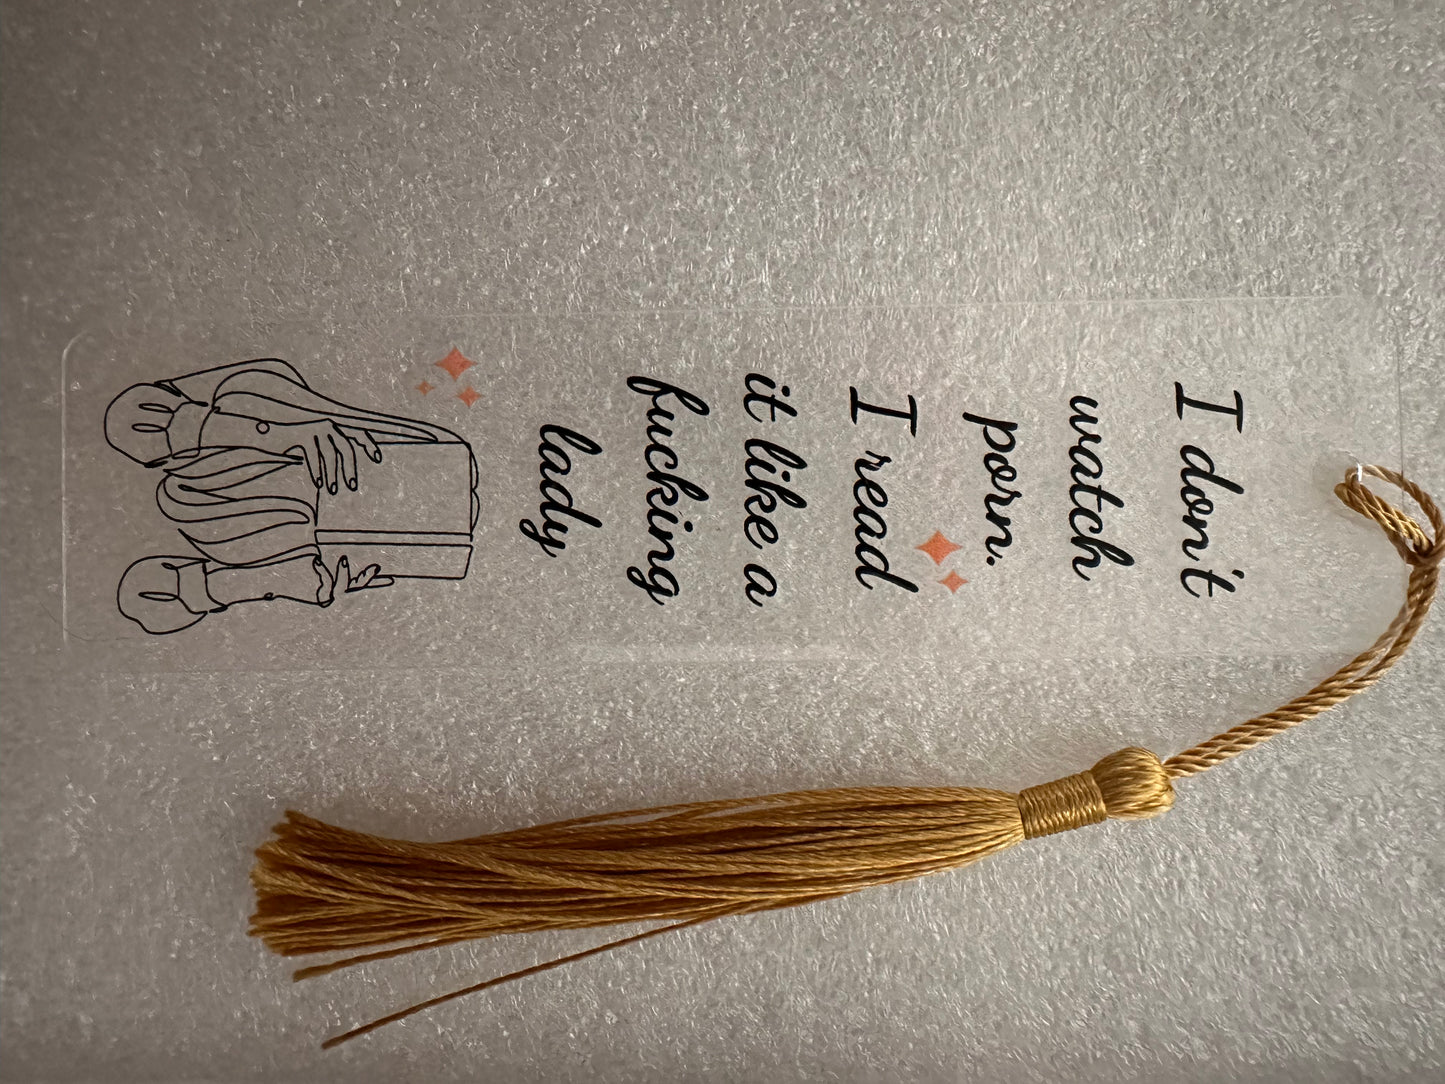 I don't
watch
porn.
I read
it like a
fucking
lady